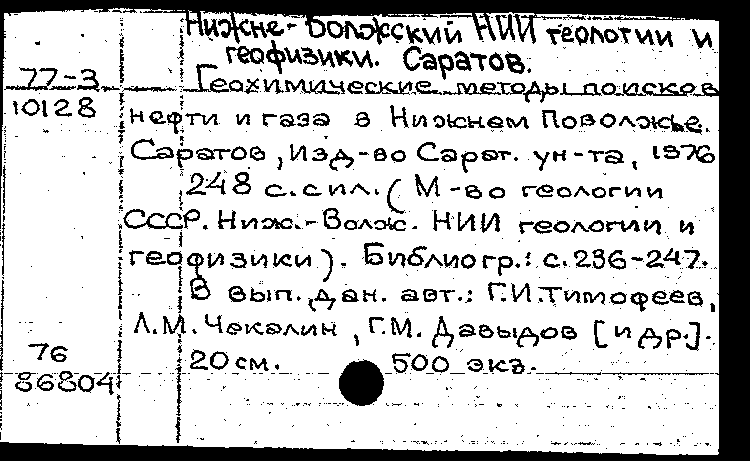 Нижне-Волжский НИИ геологии и
геофизики. Саратов.
77-3
Геохимические методы поисков
10128
нефти и газа в Нижнем Поволжье.
Саратов, Изд-во Сарат. ун-та, 1976
248 с.с ил. (М-во геологии
СССР. Ниж.-Волж. НИИ геологии и
геофизики). Библиогр.: с. 236-247.
В вып. дан. авт.: Г.И. Тимофеев,
Л.М. Чекалин, Г.М. Давыдов [и др.].
76
20 см. 500 экз.
86804